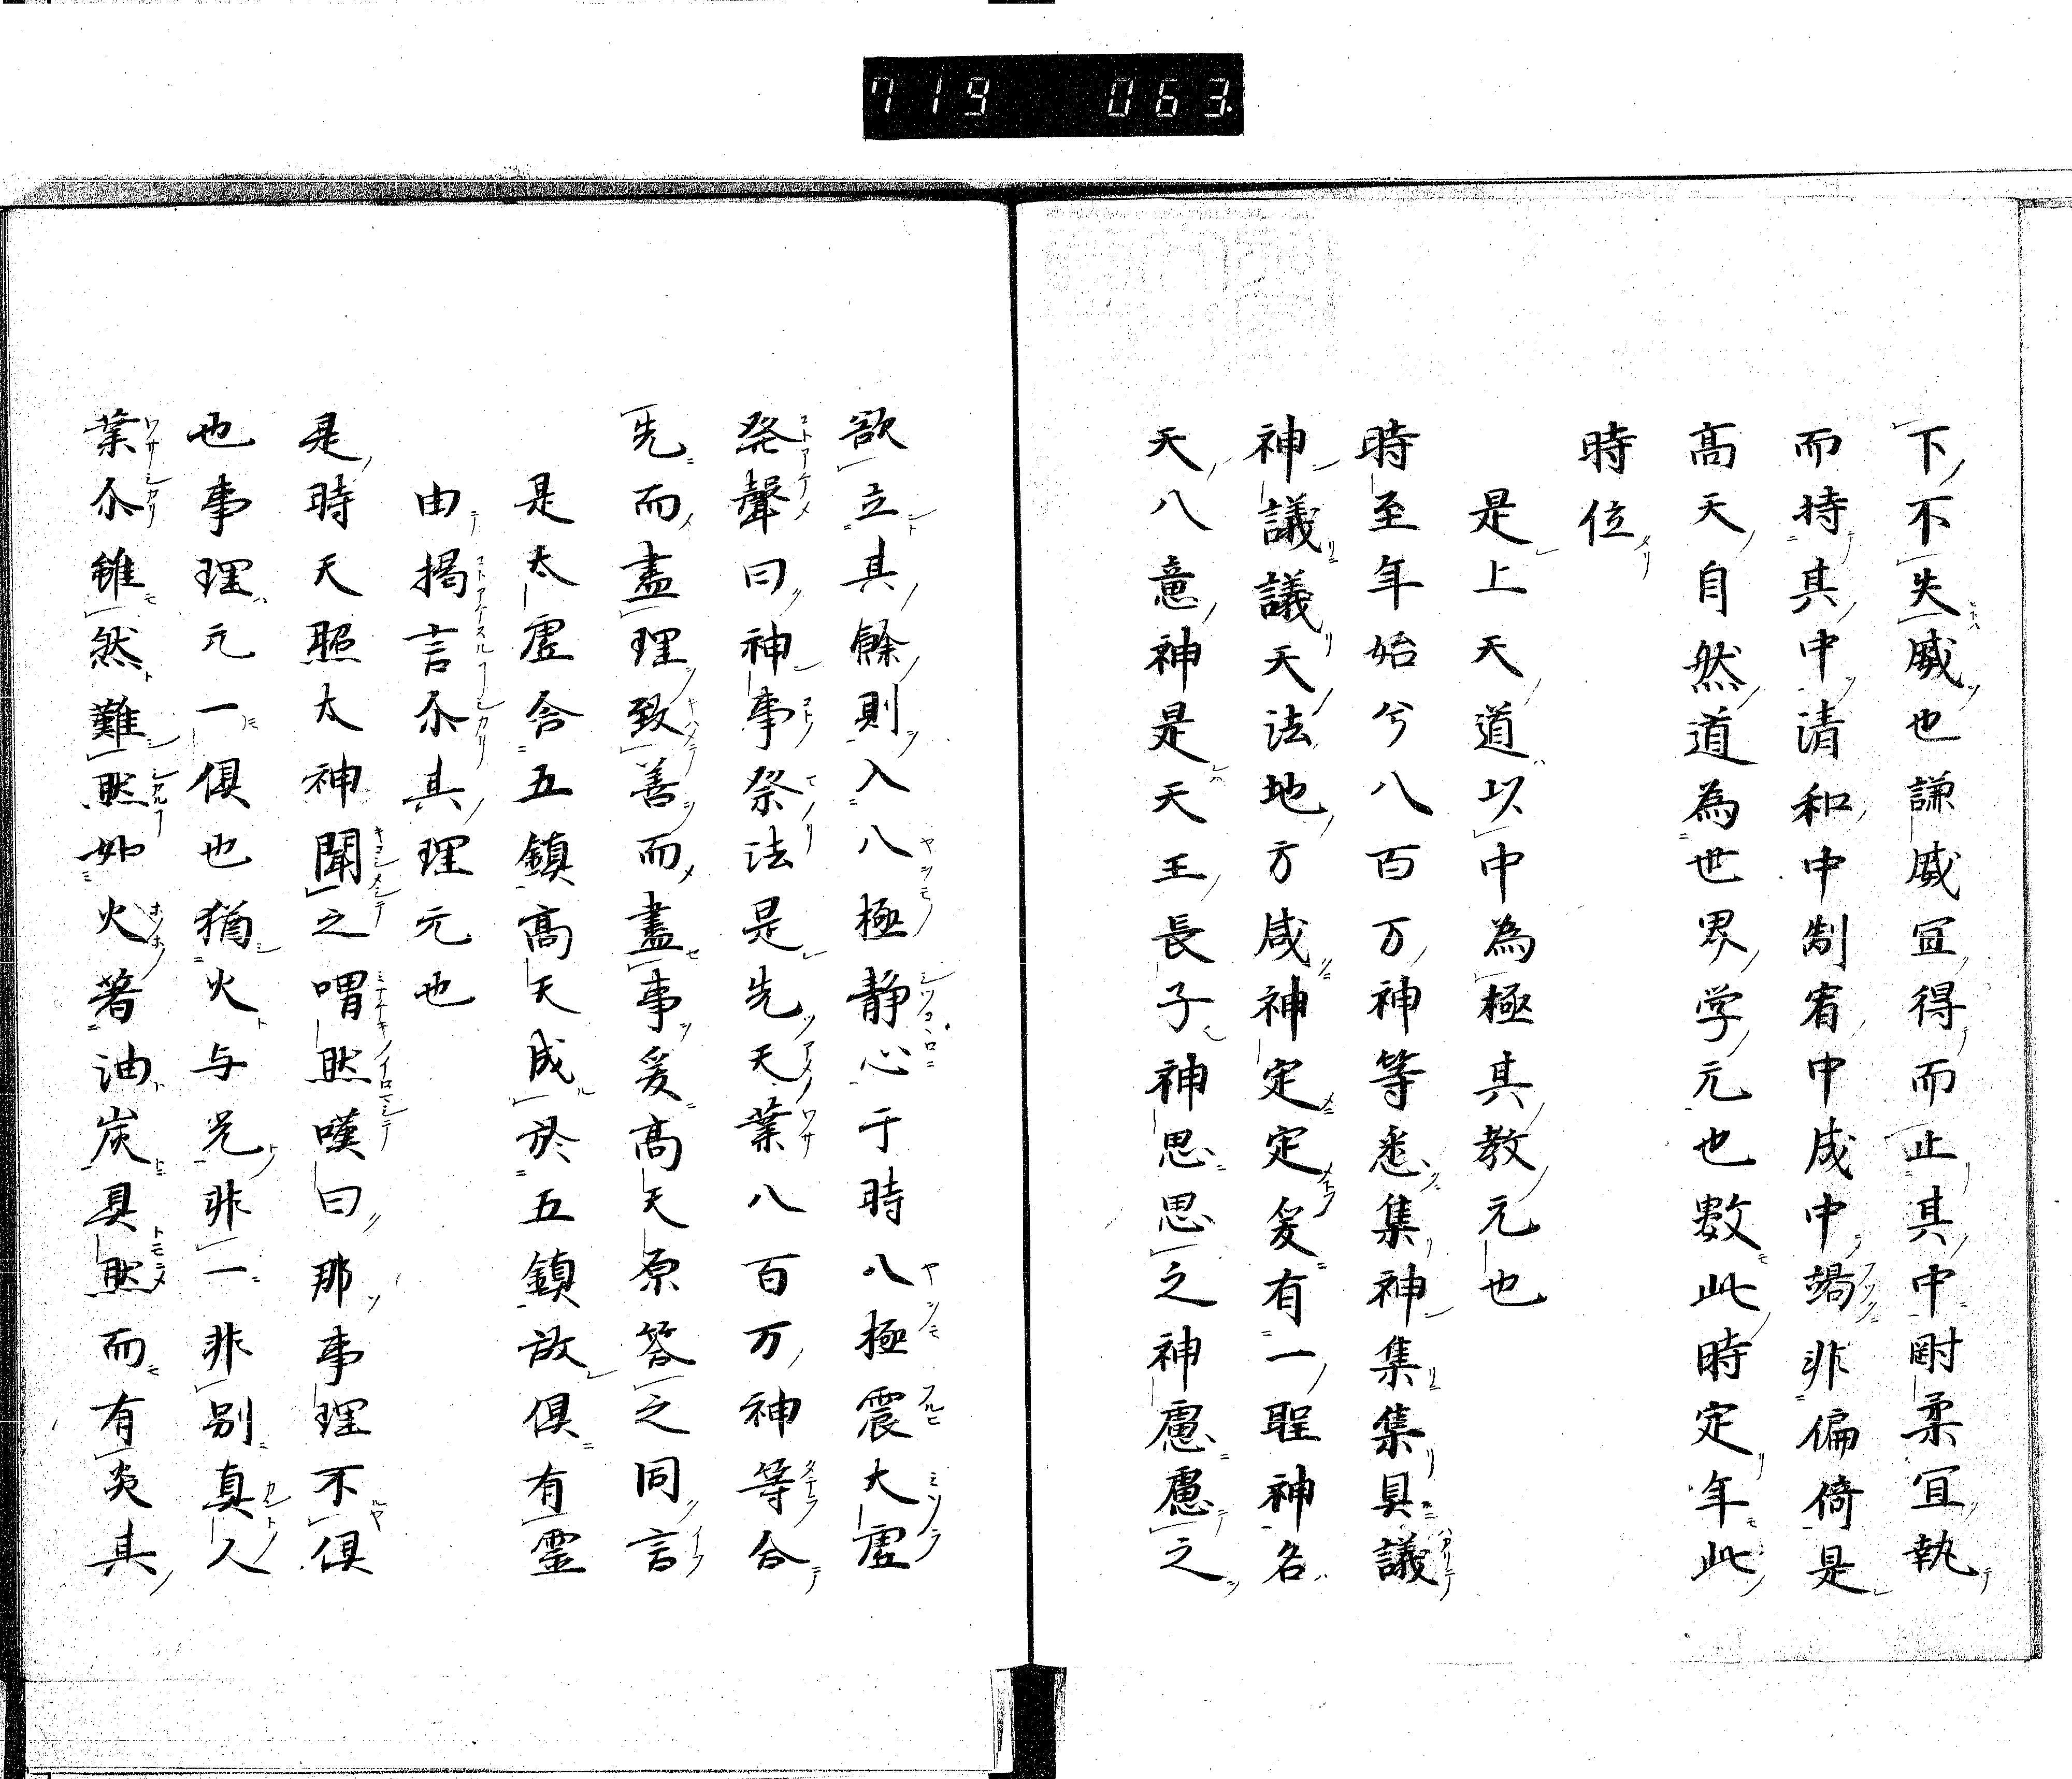 719 063
下不失威也謙威宜得而止其中剛柔宜執
而持其中清和中制宥中成中竭非偏倚是
高天自然道為世界学元也數此時定年此
時位
是上天道以中為極其教元也
時至年始兮八百万神等悉集神集集具議
神議議天法地方咸神定定爰有一聖神名
天八意神是天王長子神思思之神慮慮之
欲立其餘則入八極静心于時八極震大虚
発聲曰神事祭法是先天業八百万神等合
先而盡理致善而盡事爰高天原答之同言
是太虚含五鎮高天成於五鎮故俱有霊
由揚言尒其理元也
是時天照太神聞之喟然嘆曰那事理不俱
也事理元一俱也猶火与光非一非別真人
業尒雖然難然如火著油炭具然而有炎其